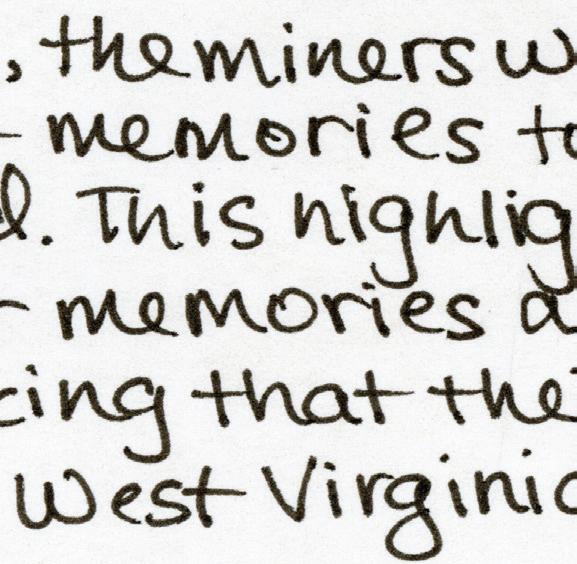 , the miners w
memories to
. This highlig
memories a
cing that the
West Virginia